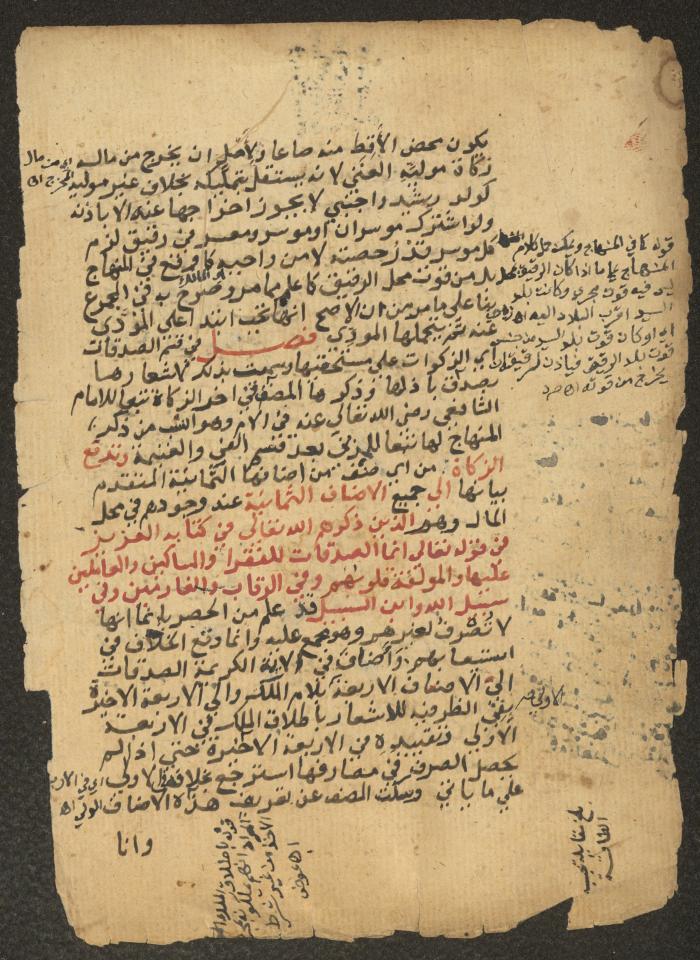 يكون محض الأقط منه صاعا ولأصل ان يخرج من ماله
زكاة موليه الغني لانه يستقل بتمليكه بخلاف غير موليه
كولد رشيد واجنبي لا يجوز اخراجها عنه الا باذنه
ولو اشترك موسران او موسر ومعسر في رقيق لزم
كل موسر قدر حصته لا من واجبه كما وقع في المنهاج
بل من قوت محل الرقيق كما علم مما مر وصرح به في المجموع
بناء على ما مر من ان الاصح انها تجب ابتداء على المؤدى
عنه ثم يتحملها المؤدي فصل في قسم الصدقات
اي الزكوات على مستحقيها وسميت بذلك لاشعارها
بصدق باذلها وذكرها المصنف في اخر الزكاة تبعا للامام
الشافعي رضي الله تعالى عنه في الام وهو انسب من ذكر
المنهاج لها تبعا للمزني بعد قسم الفيء والغنيمة وتدفع
الزكاة من اي صنف من اصنافها الثمانية المتقدم
بيانها الى جميع الاصناف الثمانية عند وجودهم في محل
المال وهم الذين ذكرهم الله تعالى في كتابه العزيز
في قوله تعالى انما الصدقات للفقراء والمساكين والعاملين
عليها والمؤلفة قلوبهم وفي الرقاب والغارمين وفي
سبيل الله وابن السبيل قد علم من الحصر بانما انها
لا تصرف لغيرهم وهو مجمع عليه وانما وقع الخلاف في
استيعابهم واضاف في الاية الكريمة الصدقات
الى الاصناف الاربعة بلام الملك والى الاربعة الاخيرة
بفي الظرفية للاشعار باطلاق الملك في الاربعة
الاولى وتقييده في الاربعة الاخيرة حتى اذا لم
يحصل الصرف في مصارفها استرجع بخلافه في الاولى
على ما ياتي وسكت المصنف عن تعريف هذه الاصناف
وانا
اي من مال
المخرج اه
قوله كما في المنهاج ويمكن حمل كلام
المنهاج على ما اذا كان الرقيق
ليس فيه قوت مجزي وكانت بلد
السيد اقرب البلاد اليه
او كان قوت بلد السيد من جنس
قوت بلد الرقيق
يخرج من قوته اه
الاولى
اي في الاربعة
الاولى اه
قوله باطلاق الملك
الاخذ من غير شرط
اه عوض
بلغ مقابلة بحسب
الطاقة